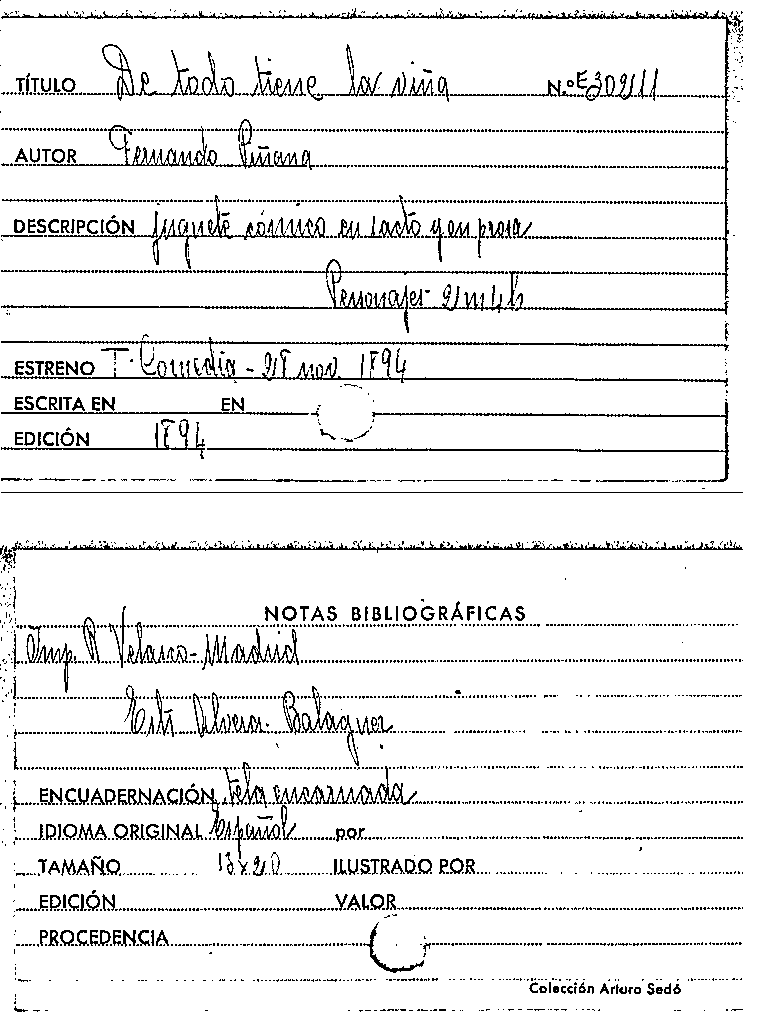 TÍTULO De todo tiene la viña N.º E30211
AUTOR Fernando Piñana
DESCRIPCIÓN juguete cómico en 1 acto y en prosa
Personajes 2 m 4 h
ESTRENO T. Comedia - 28 nov. 1894
ESCRITA EN EN
EDICIÓN 1894
NOTAS BIBLIOGRÁFICAS
Imp. R Velasco - Madrid
Balaguer
ENCUADERNACIÓN tela encarnada
IDIOMA ORIGINAL Español por
TAMAÑO 13x20 ILUSTRADO POR
EDICIÓN VALOR
PROCEDENCIA
Colección Arturo Sedó